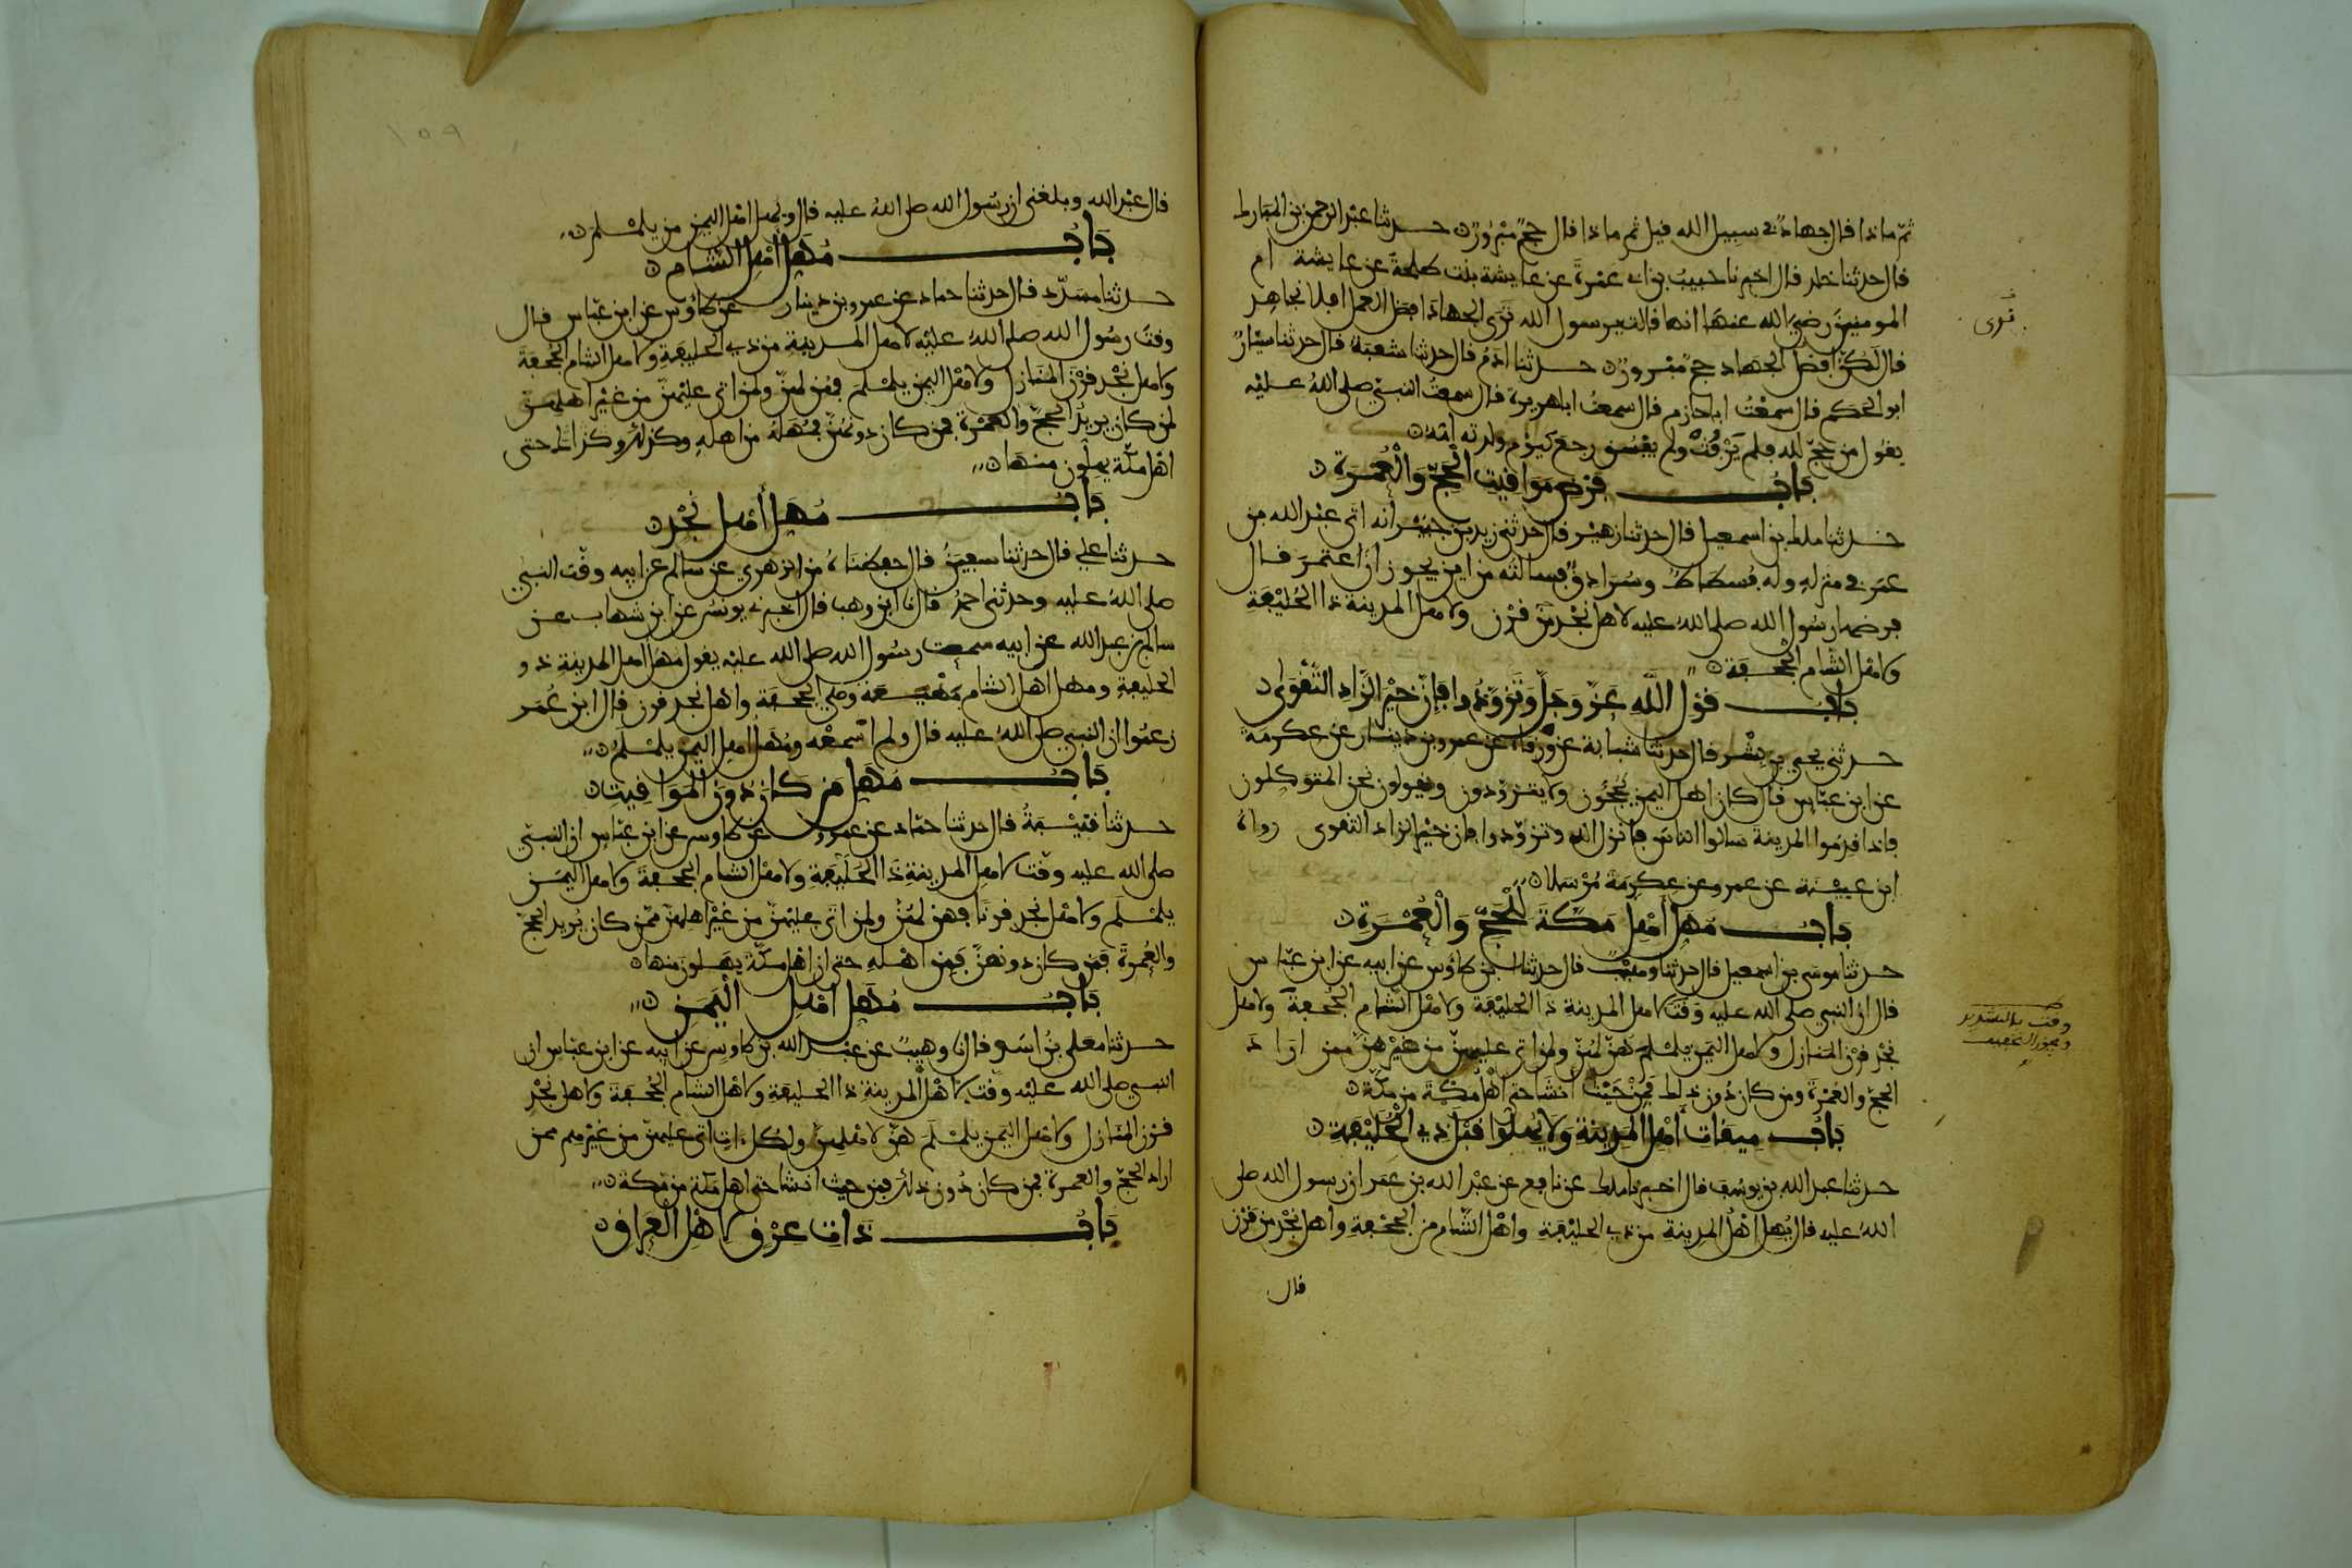 ثم ماذا قال جهاد في سبيل الله قيل ثم ماذا قال حج مبرور حدثنا عبد الرحمن بن المبارك
قال حدثنا خالد قال اخبرنا حبيب بن ابي عمرة عن عايشة بنت طلحة عن عايشة ام
المومنين رضي الله عنها انها قالت يرسول الله نرى الجهاد افضل العمل افلا نجاهد
نرى
قال لكن افضل الجهاد حج مبرور حدثنا ادم قال حدثنا شعبة قال حدثنا سيار
ابو الحكم قال سمعت ابا حازم قال سمعت ابا هريرة قال سمعت النبي صلى الله عليه
يقول من حج لله فلم يرفث ولم يفسق رجع كيوم ولدته امه
باب فرض مواقيت الحج والعمرة
حدثنا ملك بن اسمعيل قال حدثنا زهير قال حدثني زيد بن جبير انه اتى عبد الله بن
عمر في منزله وله فسطاط وسرادق فسالته من اين يجوز ان اعتمر قال
فرضها رسول الله صلى الله عليه لاهل نجد من قرن ولاهل المدينة ذا الحليفة
ولاهل الشام الجحفة
باب قول الله عز وجل وتزودوا فان خير الزاد التقوى
حدثني يحيى بن بشر قال حدثنا شبابة عن ورقاء عن عمرو بن دينار عن عكرمة
عن ابن عباس قال كان اهل اليمن يحجون ولا يتزودون ويقولون نحن المتوكلون
فاذا قدموا المدينة سالوا الناس فانزل الله وتزودوا فان خير الزاد التقوى رواه
ابن عيينة عن عمرو عن عكرمة مرسلا
باب مهل اهل مكة للحج والعمرة
حدثنا موسى بن اسمعيل قال حدثنا وهيب قال حدثنا ابن طاوس عن ابيه عن ابن عباس
قال ان النبي صلى الله عليه وقت لاهل المدينة ذا الحليفة ولاهل الشام الجحفة ولاهل
وقت بالتشديد
ويجوز التخفيف
نجد قرن المنازل ولاهل اليمن يلملم هن لهن ولمن اتى عليهن من غيرهن ممن اراد
الحج والعمرة ومن كان دون ذلك فمن حيث انشا حتى اهل مكة من مكة
باب ميقات اهل المدينة ولا يهلوا قبل ذي الحليفة
حدثنا عبد الله بن يوسف قال اخبرنا ملك عن نافع عن عبد الله بن عمر ان رسول الله صلى
الله عليه قال يهل اهل المدينة من ذي الحليفة واهل الشام من الجحفة واهل نجد من قرن
قال
١٥٩
قال عبد الله وبلغني ان رسول الله صلى الله عليه قال ويهل اهل اليمن من يلملم
باب مهل اهل الشام
حدثنا مسدد قال حدثنا حماد عن عمرو بن دينار عن طاوس عن ابن عباس قال
وقت رسول الله صلى الله عليه لاهل المدينة من ذي الحليفة ولاهل الشام الجحفة
ولاهل نجد قرن المنازل ولاهل اليمن يلملم فهن لهن ولمن اتى عليهن من غير اهلهن
لمن كان يريد الحج والعمرة فمن كان دونهن فمهله من اهله وكذلك وكذلك حتى
اهل مكة يهلون منها
باب مهل اهل نجد
حدثنا علي قال حدثنا سفين قال حفظناه من الزهري عن سالم عن ابيه وقت النبي
صلى الله عليه وحدثني احمد قال نا ابن وهب قال اخبرني يونس عن ابن شهاب عن
سالم بن عبد الله عن ابيه سمعت رسول الله صلى الله عليه يقول مهل اهل المدينة ذو
الحليفة ومهل اهل الشام مهيعة وهي الجحفة واهل نجد قرن قال ابن عمر
زعموا ان النبي صلى الله عليه قال ولم اسمعه ومهل اهل اليمن يلملم
باب مهل من كان دون المواقيت
حدثنا قتيبة قال حدثنا حماد عن عمرو عن طاوس عن ابن عباس ان النبي
صلى الله عليه وقت لاهل المدينة ذا الحليفة ولاهل الشام الجحفة ولاهل اليمن
يلملم ولاهل نجد قرنا فهن لهن ولمن اتى عليهن من غير اهلهن ممن كان يريد الحج
والعمرة فمن كان دونهن فمن اهله حتى ان اهل مكة يهلون منها
باب مهل اهل اليمن
حدثنا معلى بن اسد قال نا وهيب عن عبد الله بن طاوس عن ابيه عن ابن عباس ان
النبي صلى الله عليه وقت لاهل المدينة ذا الحليفة ولاهل الشام الجحفة ولاهل نجد
قرن المنازل ولاهل اليمن يلملم هن لاهلهن ولكل ات اتى عليهن من غيرهم ممن
اراد الحج والعمرة فمن كان دون ذلك فمن حيث انشا حتى اهل مكة من مكة
باب ذات عرق لاهل العراق